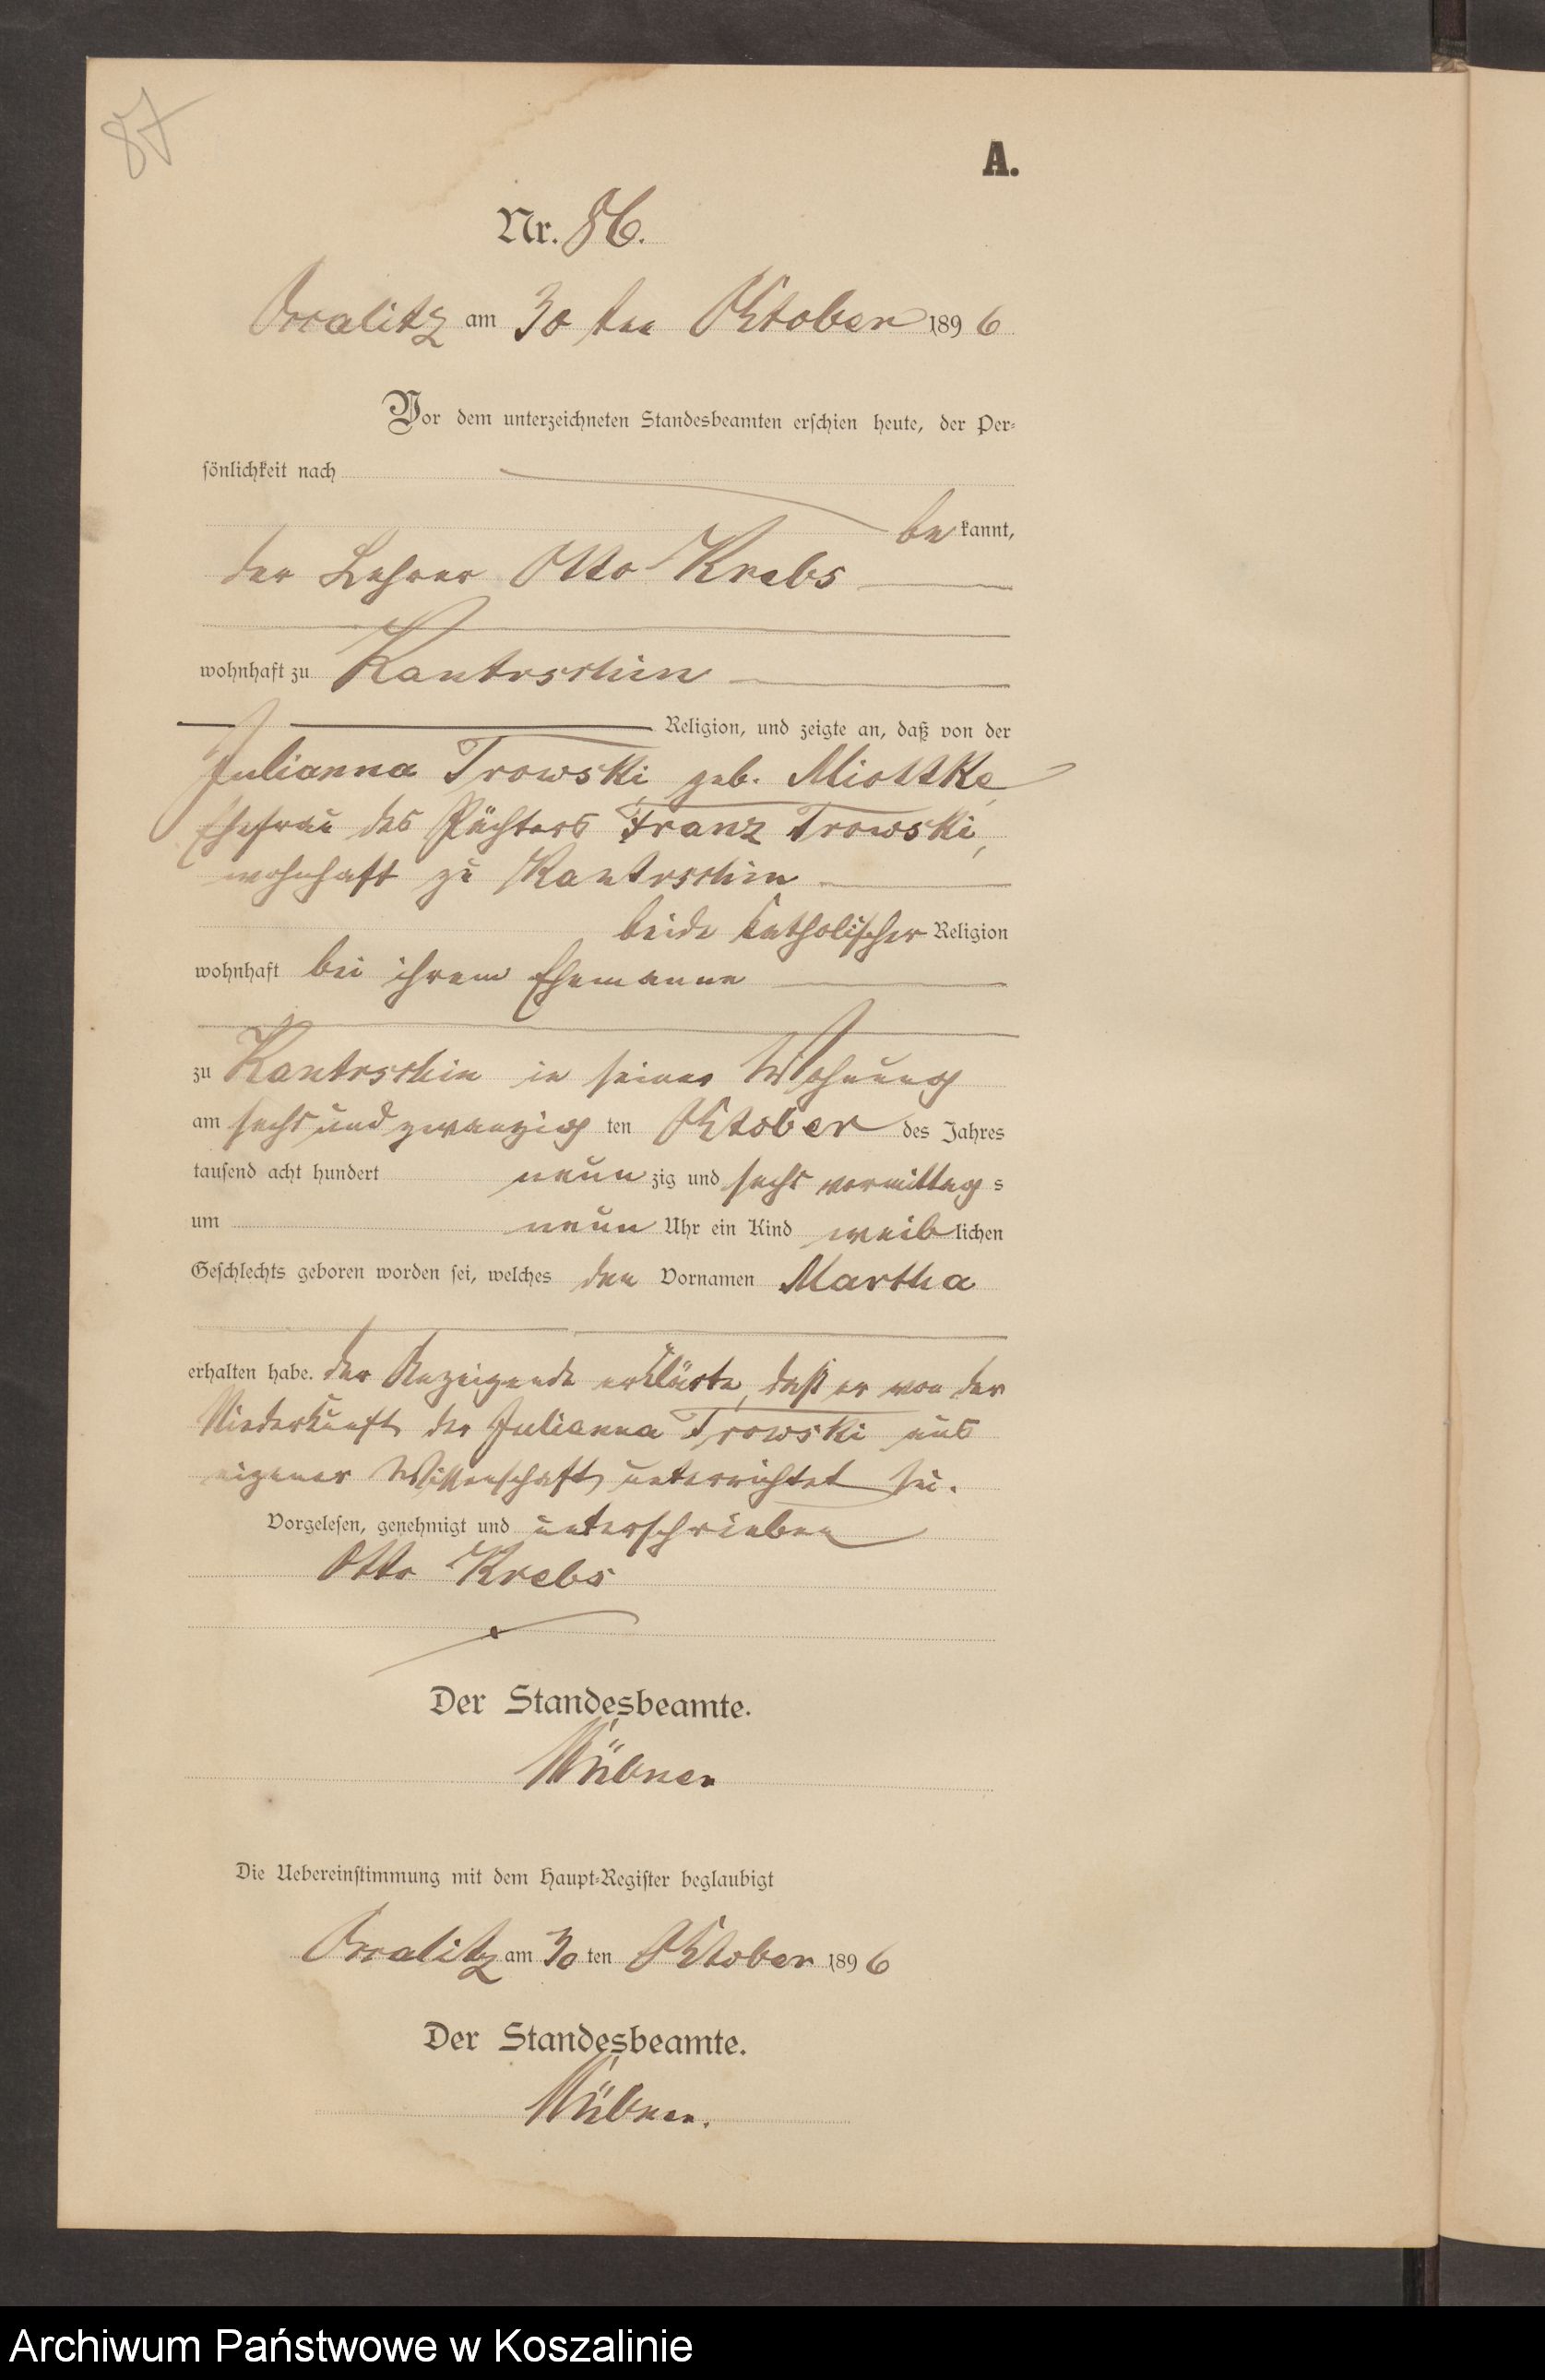 87
A.
Nr. 86.
Occalitz am 30 ten Oktober 1896
Vor dem unterzeichneten Standesbeamten erschien heute, der Per-
sönlichkeit nach
be kannt,
der Lehrer Otto Krebs
wohnhaft zu Kantrschin
Religion, und zeigte an, daß von der
Julianna Trowski geb. Miottke,
Ehefrau des Pächters Franz Trowski,
wohnhaft zu Kantrschin
beide katholischer Religion
wohnhaft bei ihrem Ehemanne
zu Kantrschin in seiner Wohnung
am sechs und zwanzig ten Oktober des Jahres
tausend acht hundert neun zig und sechs vormittag s
um neun Uhr ein Kind weib lichen
Geschlechts geboren worden sei, welches den Vornamen Martha
erhalten habe. Der Anzeigende erklärte, daß er von der
Niederkunft der Julianna Trowski aus
eigener Wissenschaft unterrichtet sei.
Vorgelesen, genehmigt und unterschrieben
Otto Krebs
Der Standesbeamte.
Die Uebereinstimmung mit dem Haupt-Register beglaubigt
Occalitz am 30 ten Oktober 1896
Der Standesbeamte.
Archiwum Państwowe w Koszalinie